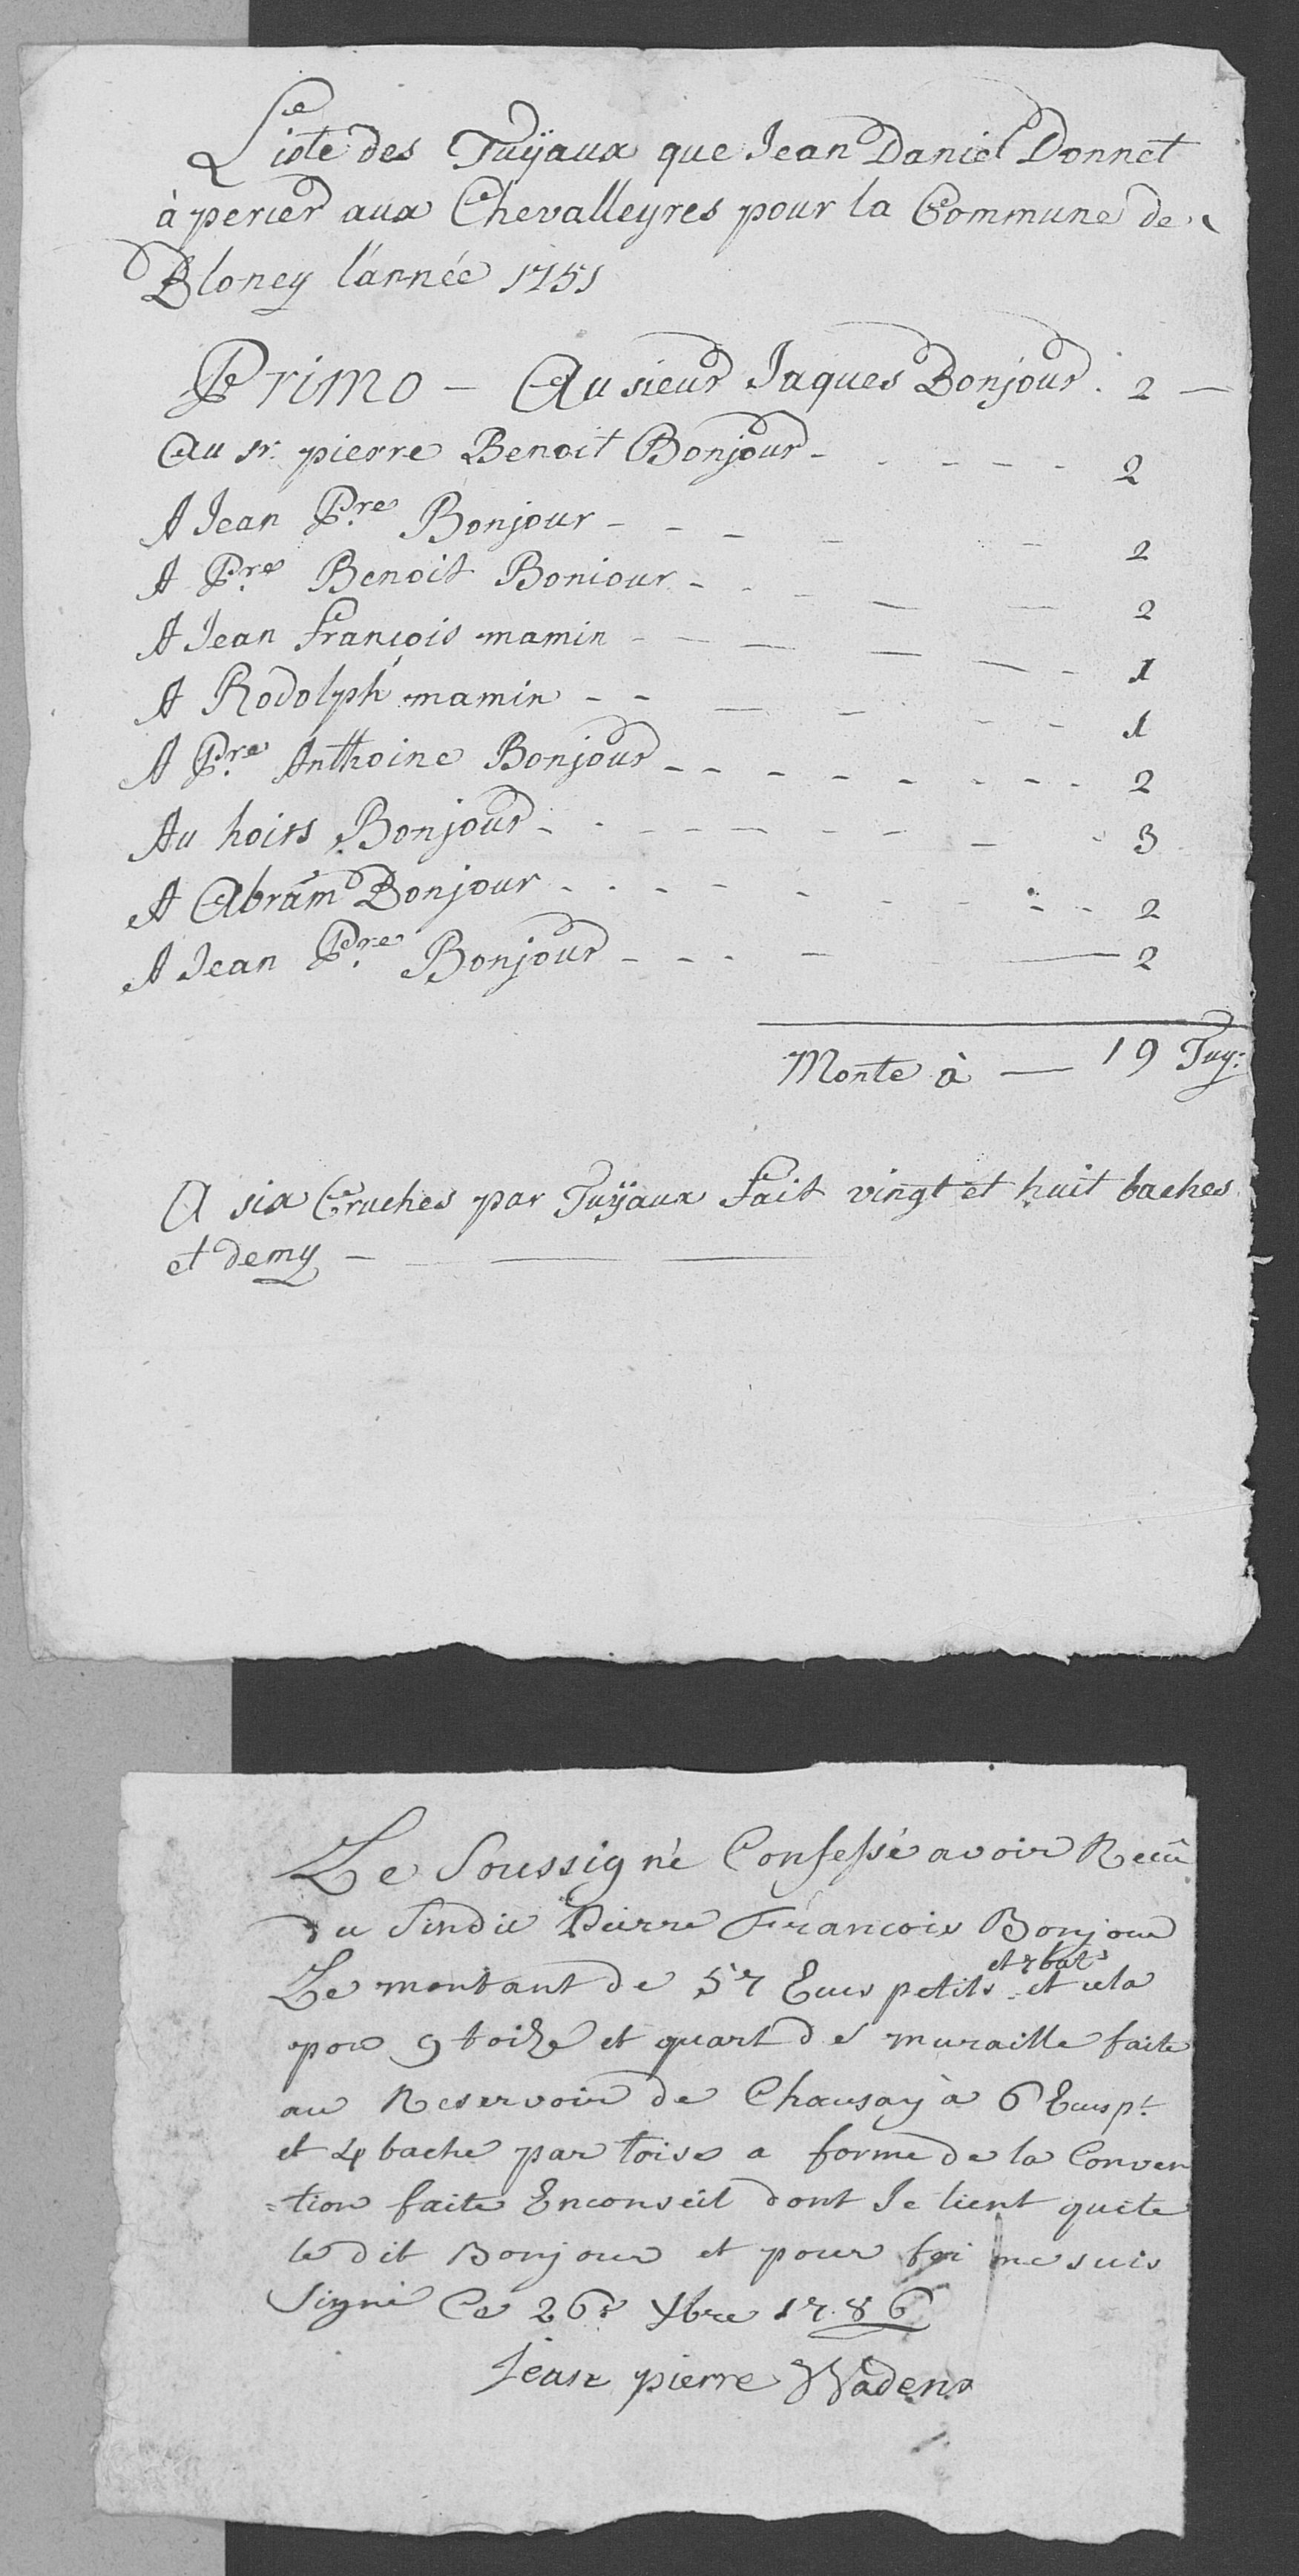 Liste des Tuÿaux que Jean Daniel Donnet
à percer aux Chevalleyres pour la Commune de
Bloney l'année 1751
Primo - Au sieur Jaques Bonjour . 2 -
Au sr. pierre Benoit Bonjour - - - - - 2
A Jean Pre. Bonjour - - - - - 2
A Pre. Benoit Boniour - - - - - 2
A Jean François mamin - - - - - 1
A Rodolph mamin - - - - - 1
A Pre. Anthoine Bonjour - - - - - 2
Au hoirs Bonjour - - - - - 3
A Abram Bonjour - - - - - 2
A Jean Pre. Bonjour - - - - - 2
Monte à — 19 Tuy:
A six Cruches par Tuÿaux fait vingt et huit baches
et demy -
Le Soussigné Confessé avoir Recû
du Sindic Pierre Francois Bonjour
et 7 bats
Le montant de 57 Ecus petits et cela
pour 9 toize et quart de muraille faite
au Reservoir de Chausay à 6 Ecus pt.
et 4 bache par toise a forme de la Conven
=tion faite Enconseil dont Je tient quite
le dit Bonjour et pour foi me suis
Signé Ce 26e Xbre 1786
Jean pierre